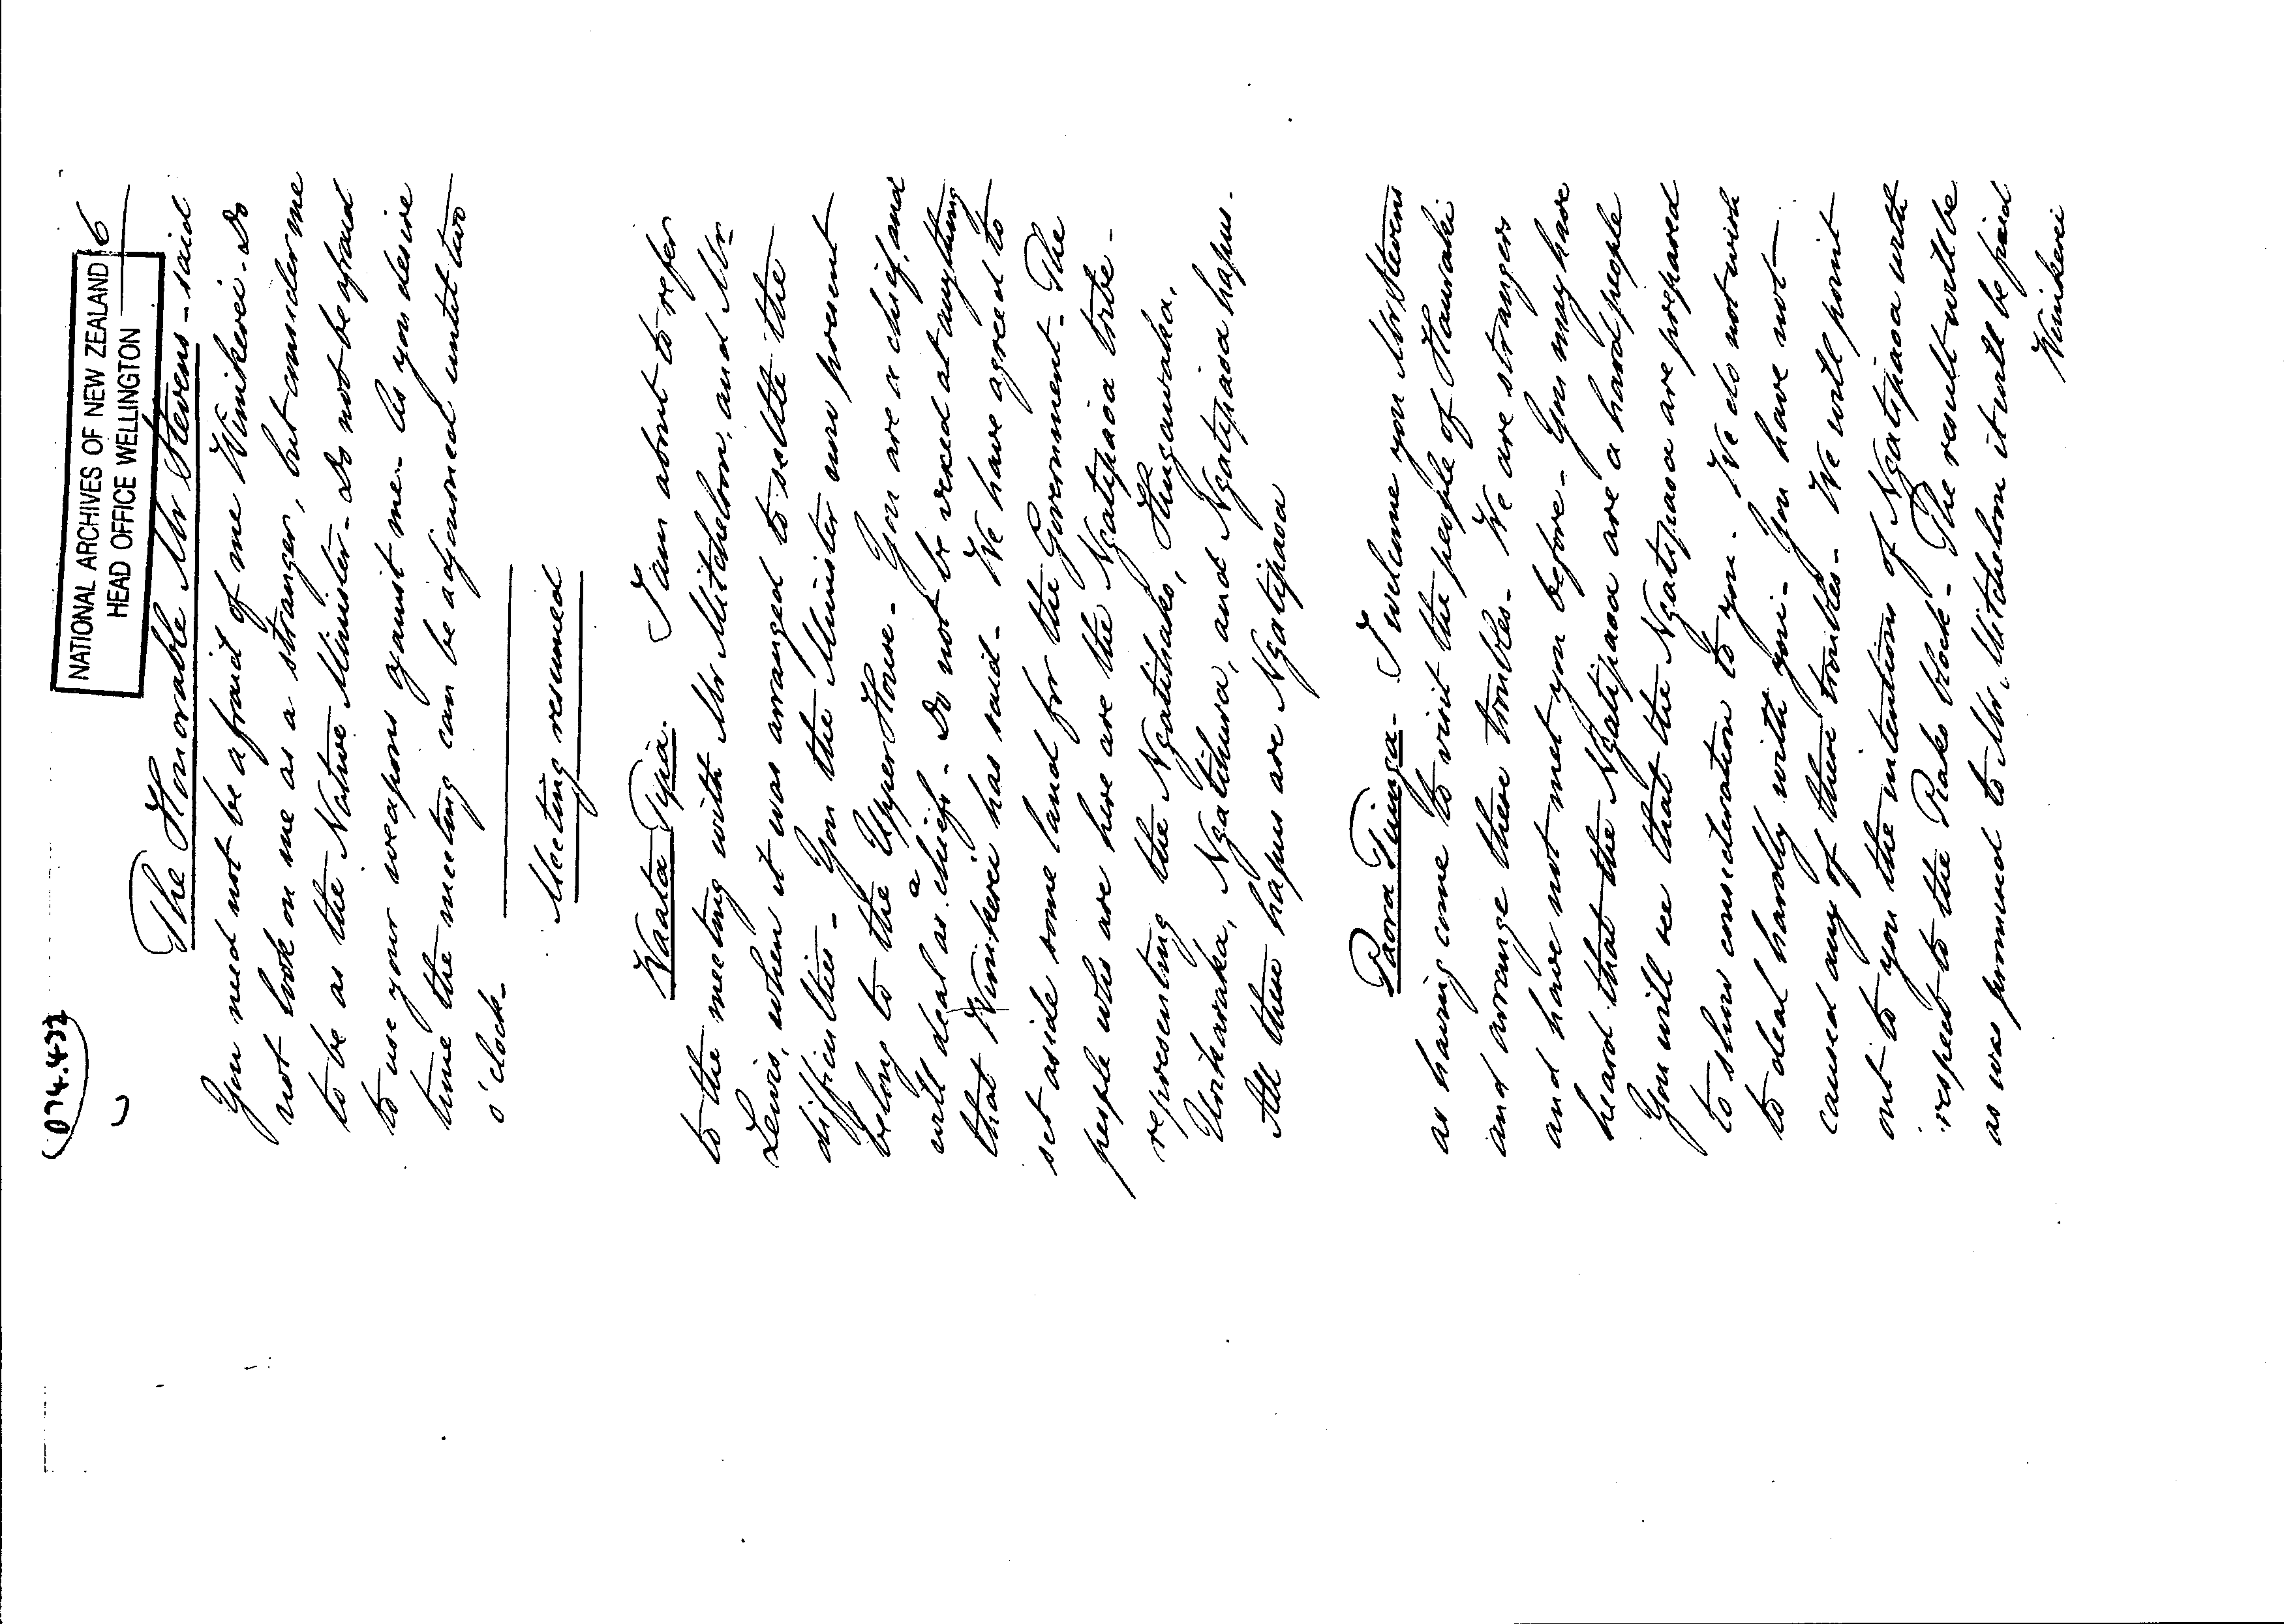 074.432
NATIONAL ARCHIVES OF NEW ZEALAND
HEAD OFFICE WELLINGTON
6
The Honorable Mr Stevens - said
You need not be afraid of me Winikerei. Do
not look on me as a stranger, but consider me
to be as the Native Minister. Do not be afraid
to use your weapons against me. As you desire
time the meeting can be adjourned until two
o'clock -
Meeting resumed
Waata Tipa. I am about to refer
to the meeting with Mr Mitchelson, and Mr
Lewis, when it was arranged to settle the
difficulties - You the Minister now present
belong to the Upper House - You are a chief, and
will deal as a chief - Do not be vexed at anything
that Winikerei has said - We have agreed to
set aside some land for the Government - The
people who are here are the Ngatipaoa tribe -
representing the Ngatihako, Hungawaka,
Urikaraka, Ngatihura, and Ngatipaoa hapus -
All these hapus are Ngatipaoa
Paora Tiunga - I welcome you Mr Stevens
as having come to visit the people of Hauraki
and arrange these troubles - We are strangers
and have not met you before - You may have
heard that the Ngatipaoa are a hard people
You will see that the Ngatipaoa are prepared
to show consideration to you - We do not wish
to deal hardly with you - You have not
caused any of these troubles - We will point
out to you the intention of Ngatipaoa with
respect to the Piako block - The result will be
as was promised to Mr. Mitchelson it will be paid
Winikerei